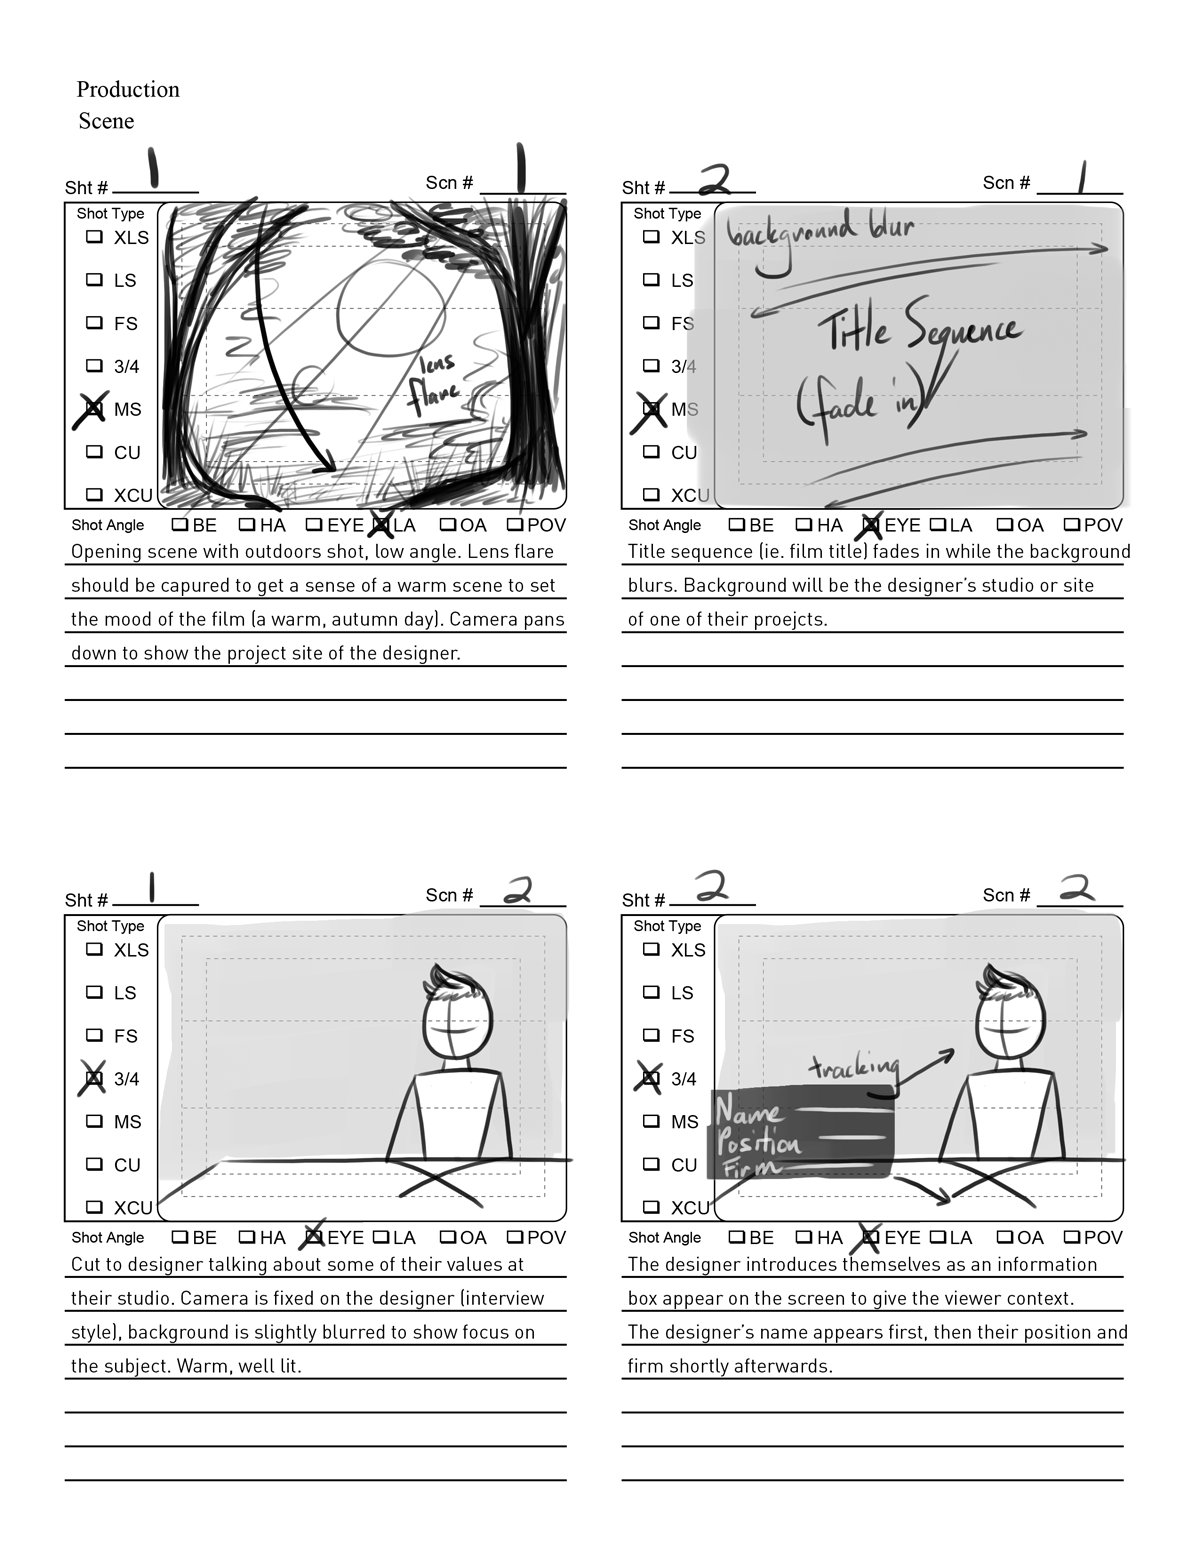 Production
Scene
Sht # 1
Scn # 1
Shot Type
XLS
LS
FS
3/4
MS
CU
XCU
lens
flare
Shot Angle BE HA EYE LA OA POV
Opening scene with outdoors shot, low angle. Lens flare
should be capured to get a sense of a warm scene to set
the mood of the film (a warm, autumn day). Camera pans
down to show the project site of the designer.
Sht # 2
Scn # 1
Shot Type
XLS
LS
FS
3/4
MS
CU
XCU
background blur
Title Sequence
(fade in)
Shot Angle BE HA EYE LA OA POV
Title sequence (ie. film title) fades in while the background
blurs. Background will be the designer's studio or site
of one of their proejcts.
Sht # 1
Scn # 2
Shot Type
XLS
LS
FS
3/4
MS
CU
XCU
Shot Angle BE HA EYE LA OA POV
Cut to designer talking about some of their values at
their studio. Camera is fixed on the designer (interview
style), background is slightly blurred to show focus on
the subject. Warm, well lit.
Sht # 2
Scn # 2
Shot Type
XLS
LS
FS
3/4
MS
CU
XCU
tracking
Name
Position
Firm
Shot Angle BE HA EYE LA OA POV
The designer introduces themselves as an information
box appear on the screen to give the viewer context.
The designer's name appears first, then their position and
firm shortly afterwards.